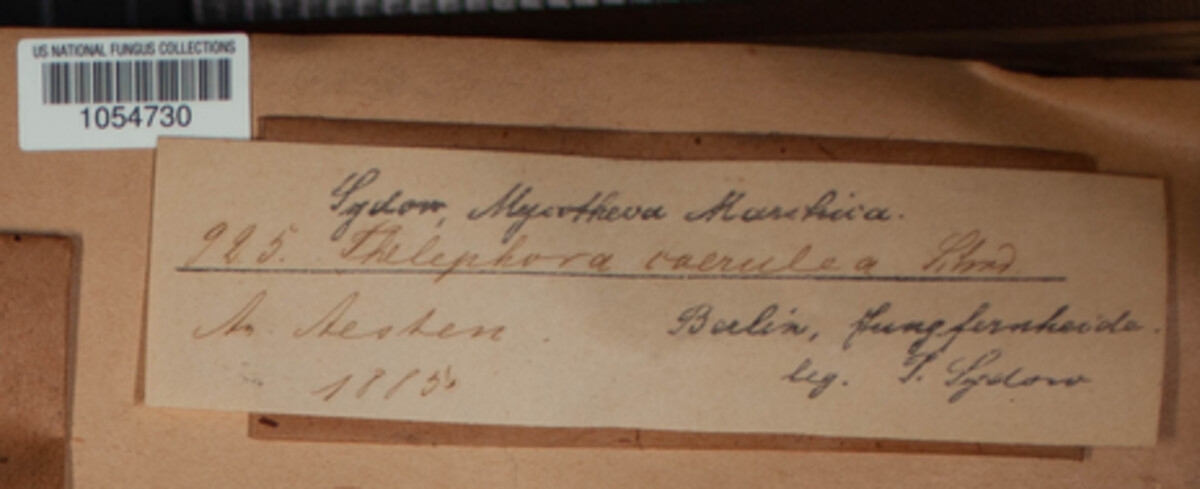 US NATIONAL FUNGUS COLLECTIONS
1054730
Sydow, Mycotheca Marchica.
925. Thelephora coerulea Schrad.
An Aesten.
Berlin, Jungfernheide.
1885
leg. P. Sydow